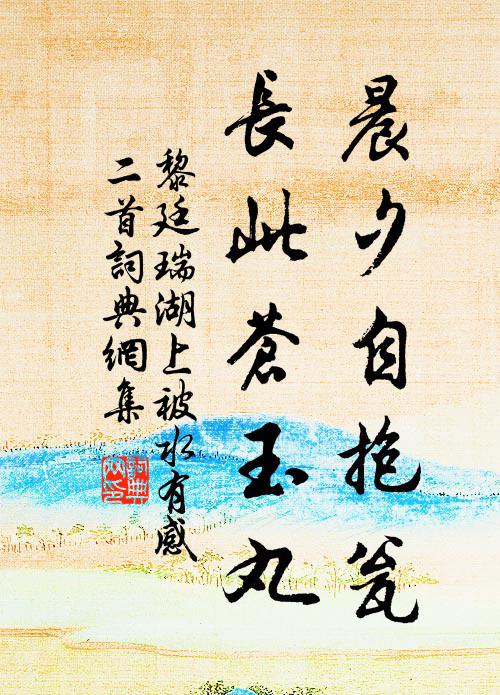 晨夕自抱瓮
長此蒼玉丸
黎廷瑞湖上被水有感
二首詞典網集